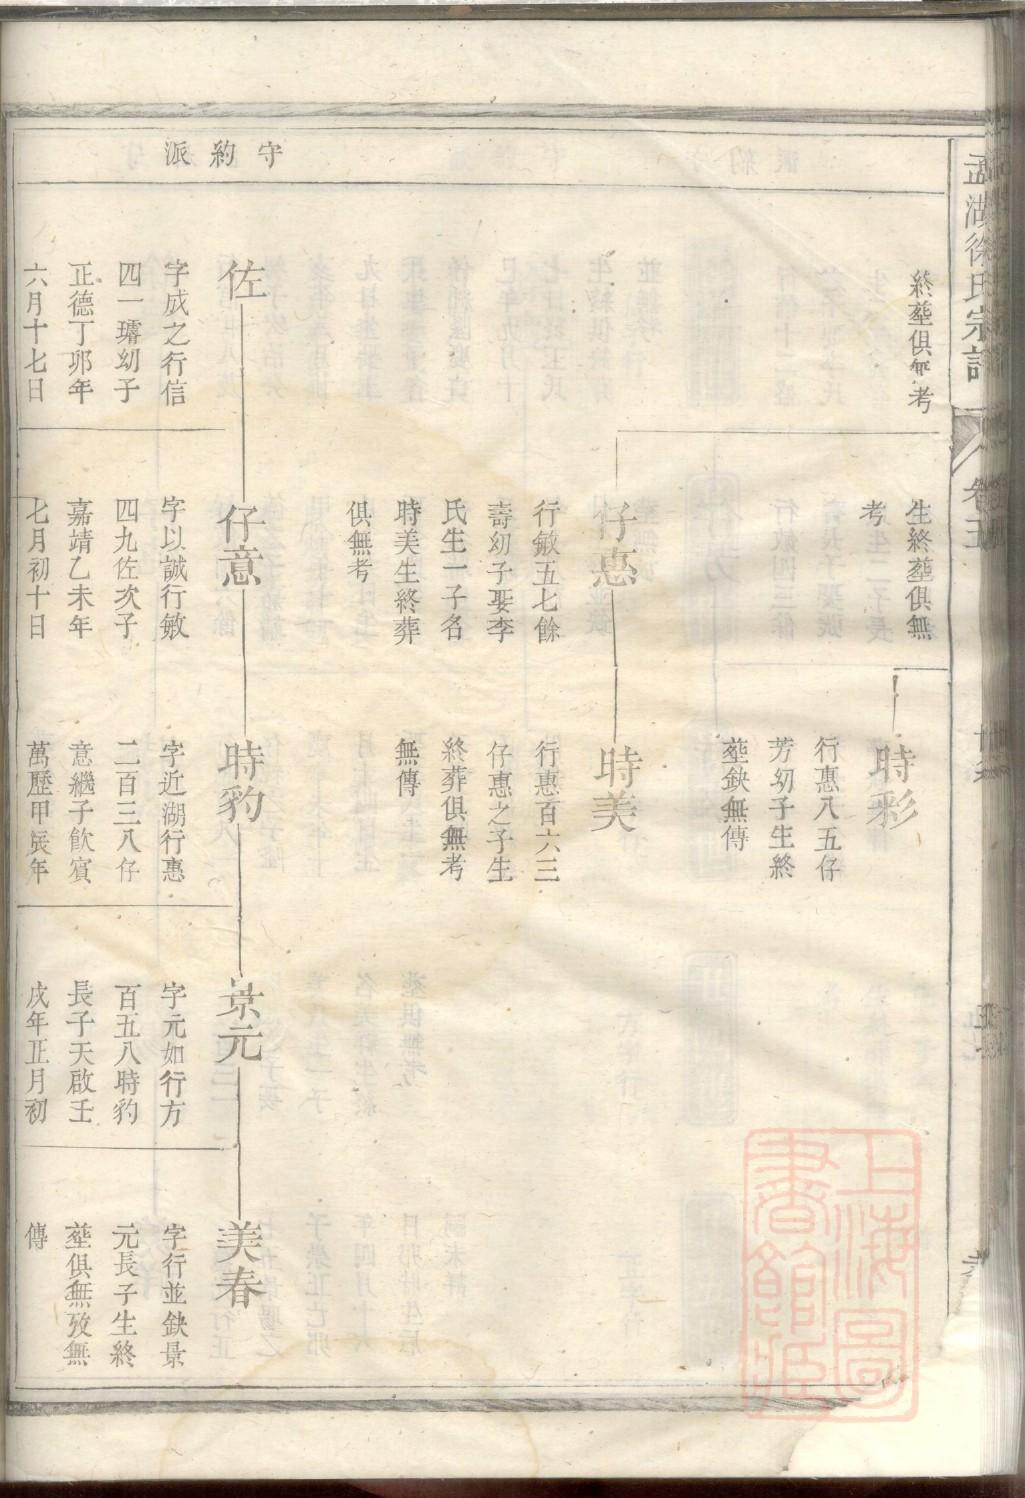 孟湖徐氏宗譜
卷五
守約派
終塟俱無考
佐
字成之行信
四一璿幼子
正德丁卯年
六月十七日
生終塟俱無
考
仔惪
行敏五七餘
壽幼子娶李
氏生一子名
時美生終葬
俱無考
仔意
字以誠行敏
四九佐次子
嘉靖乙未年
七月初十日
時彩
行惠八五仔
芳幼子生終
塟缺無傳
時美
行惠百六三
仔惠之子生
終葬俱無考
無傳
時豹
字近湖行惠
二百三八仔
意繼子飲賓
萬歷甲辰年
景元
字元如行方
百五八時豹
長子天啟壬
戌年正月初
美春
字行並缺景
元長子生終
塟俱無攷無
傳
上海圖
書館藏